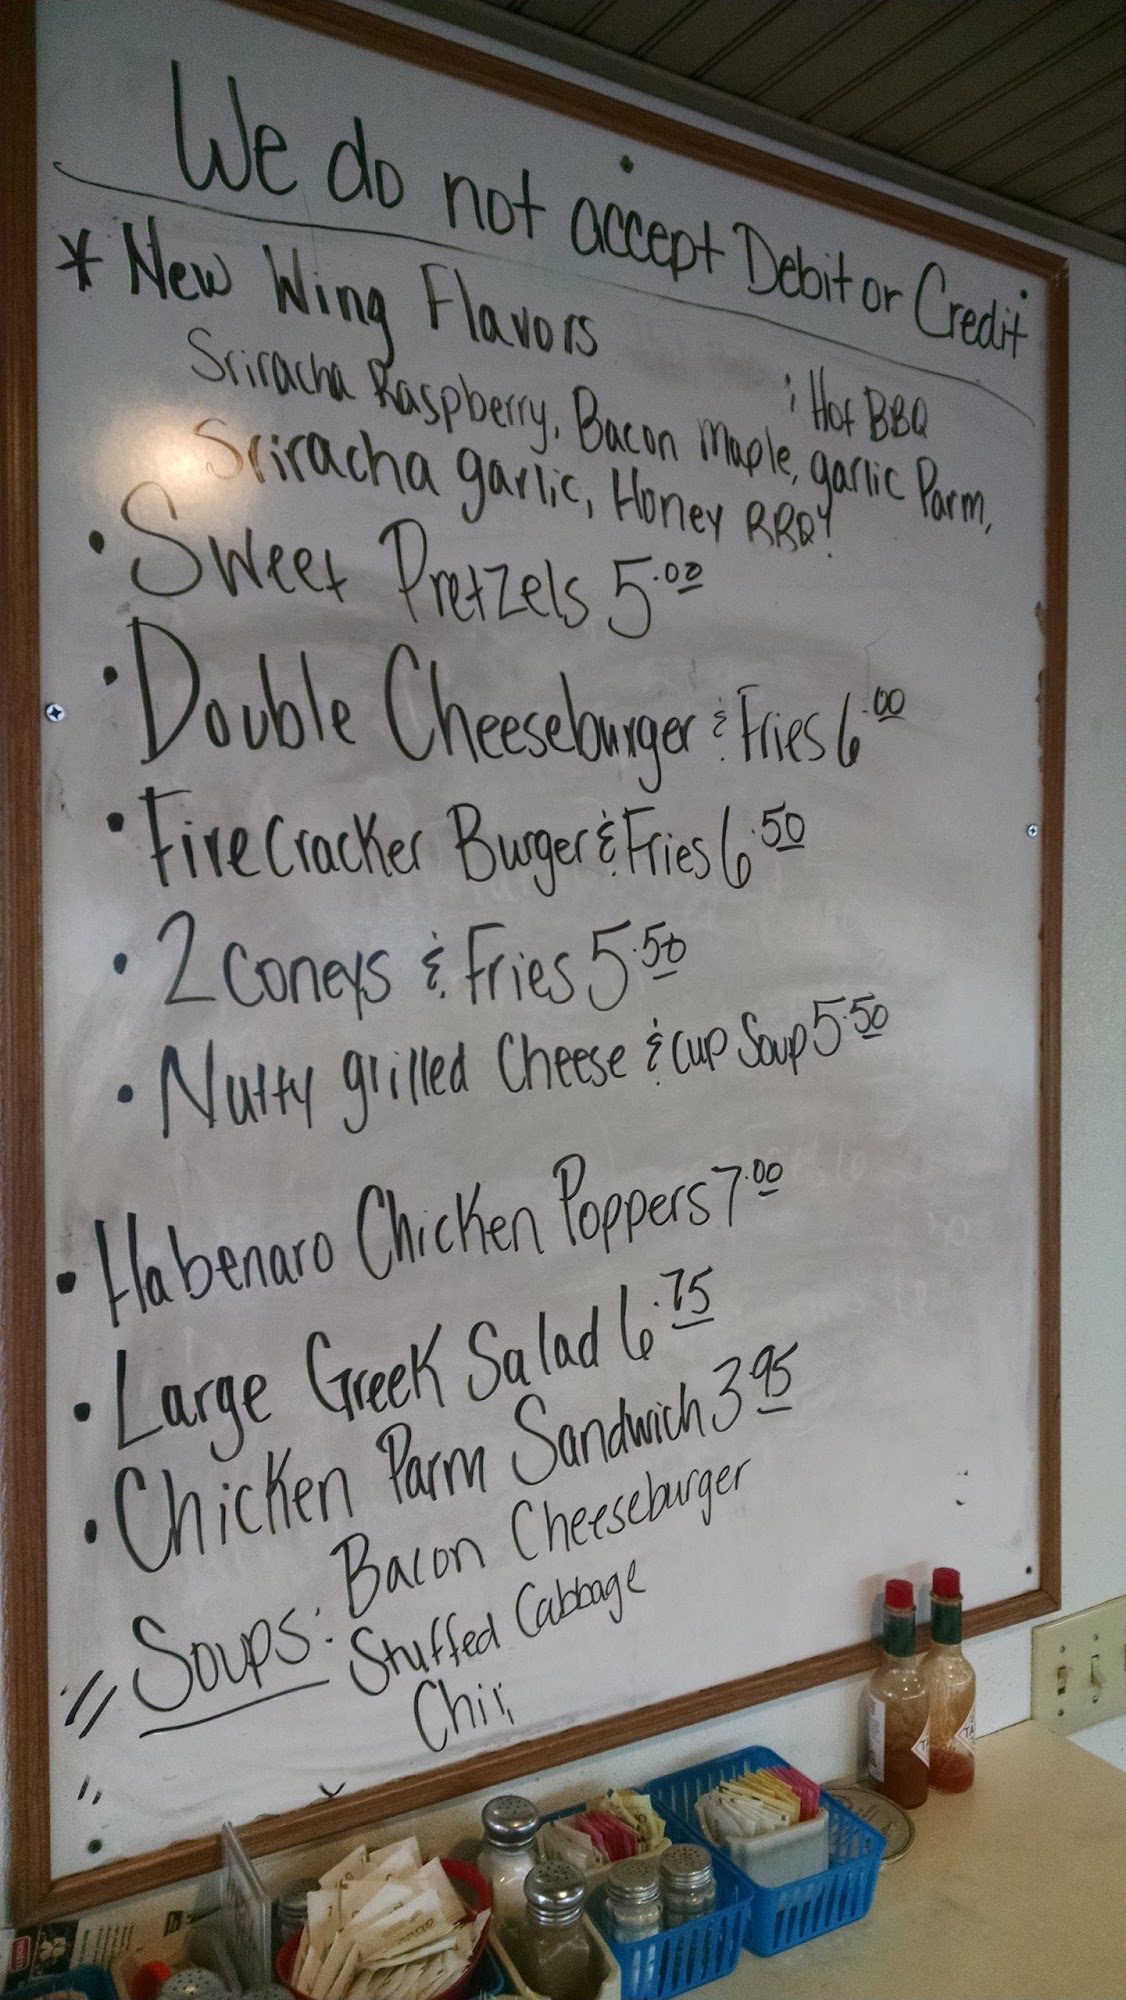 We do not accept Debit or Credit
* New Wing Flavors
Sriracha Raspberry, Bacon Maple, garlic Parm,
& Hot BBQ
Sriracha garlic, Honey BBQ
• Sweet Pretzels 5.00
• Double Cheeseburger & Fries 6.00
• Firecracker Burger & Fries 6.50
• 2 Coneys & Fries 5.50
• Nutty grilled Cheese & cup Soup 5.50
• Habenaro Chicken Poppers 7.00
• Large Greek Salad 6.75
• Chicken Parm Sandwich 3.95
Soups: Bacon Cheeseburger
Stuffed Cabbage
Chili